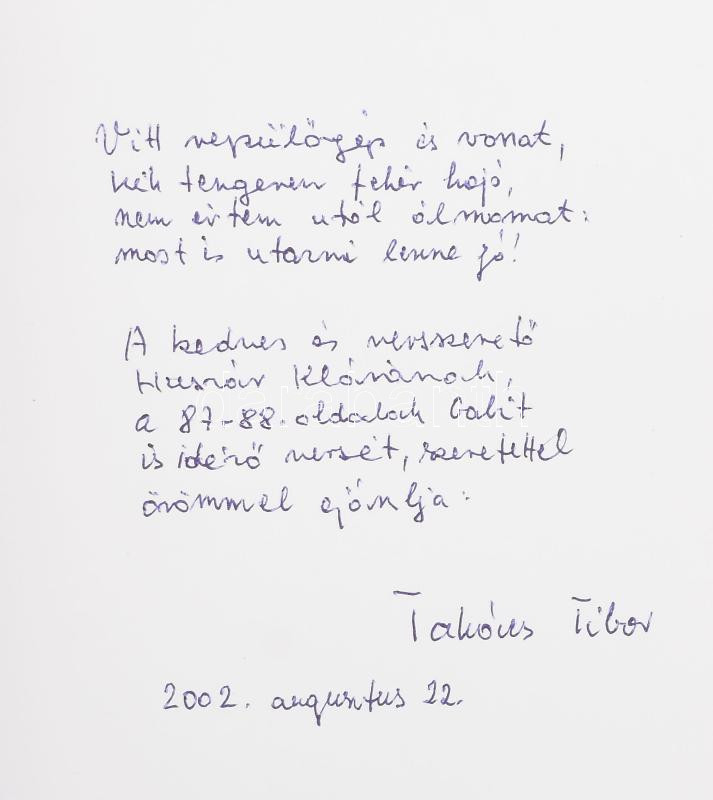 Vitt repülőgép és vonat,
kék tengeren fehér hajó,
nem értem utól álmomat:
most is utazni lenne jó!
A kedves és versszerető
Huszár Klárának,
a 87-88. oldalak Gabit
is idéző versét, szeretettel
örömmel ajánlja:
Takács Tibor
2002. augusztus 22.
darabanth